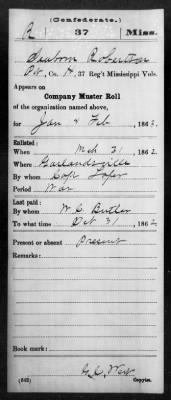 (Confederate.)
R 37 Miss.
Seaborn Robertson
Pvt, Co. H, 37 Reg't Mississippi Vols.
Appears on
Company Muster Roll
of the organization named above,
for Jan & Feb, 1863.
Enlisted:
When Mch 31, 1862.
Where Garlandsville
By whom Capt Loper
Period War
Last paid:
By whom W. C. Butler
To what time Oct 31, 1862.
Present or absent Present
Remarks:
Book mark:
(642) Copyist.